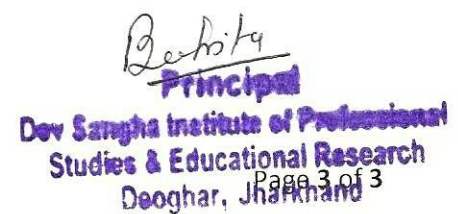 Principal
Dev Sangha Institute of Professional
Studies & Educational Research
Deoghar, Jharkhand
Page 3 of 3